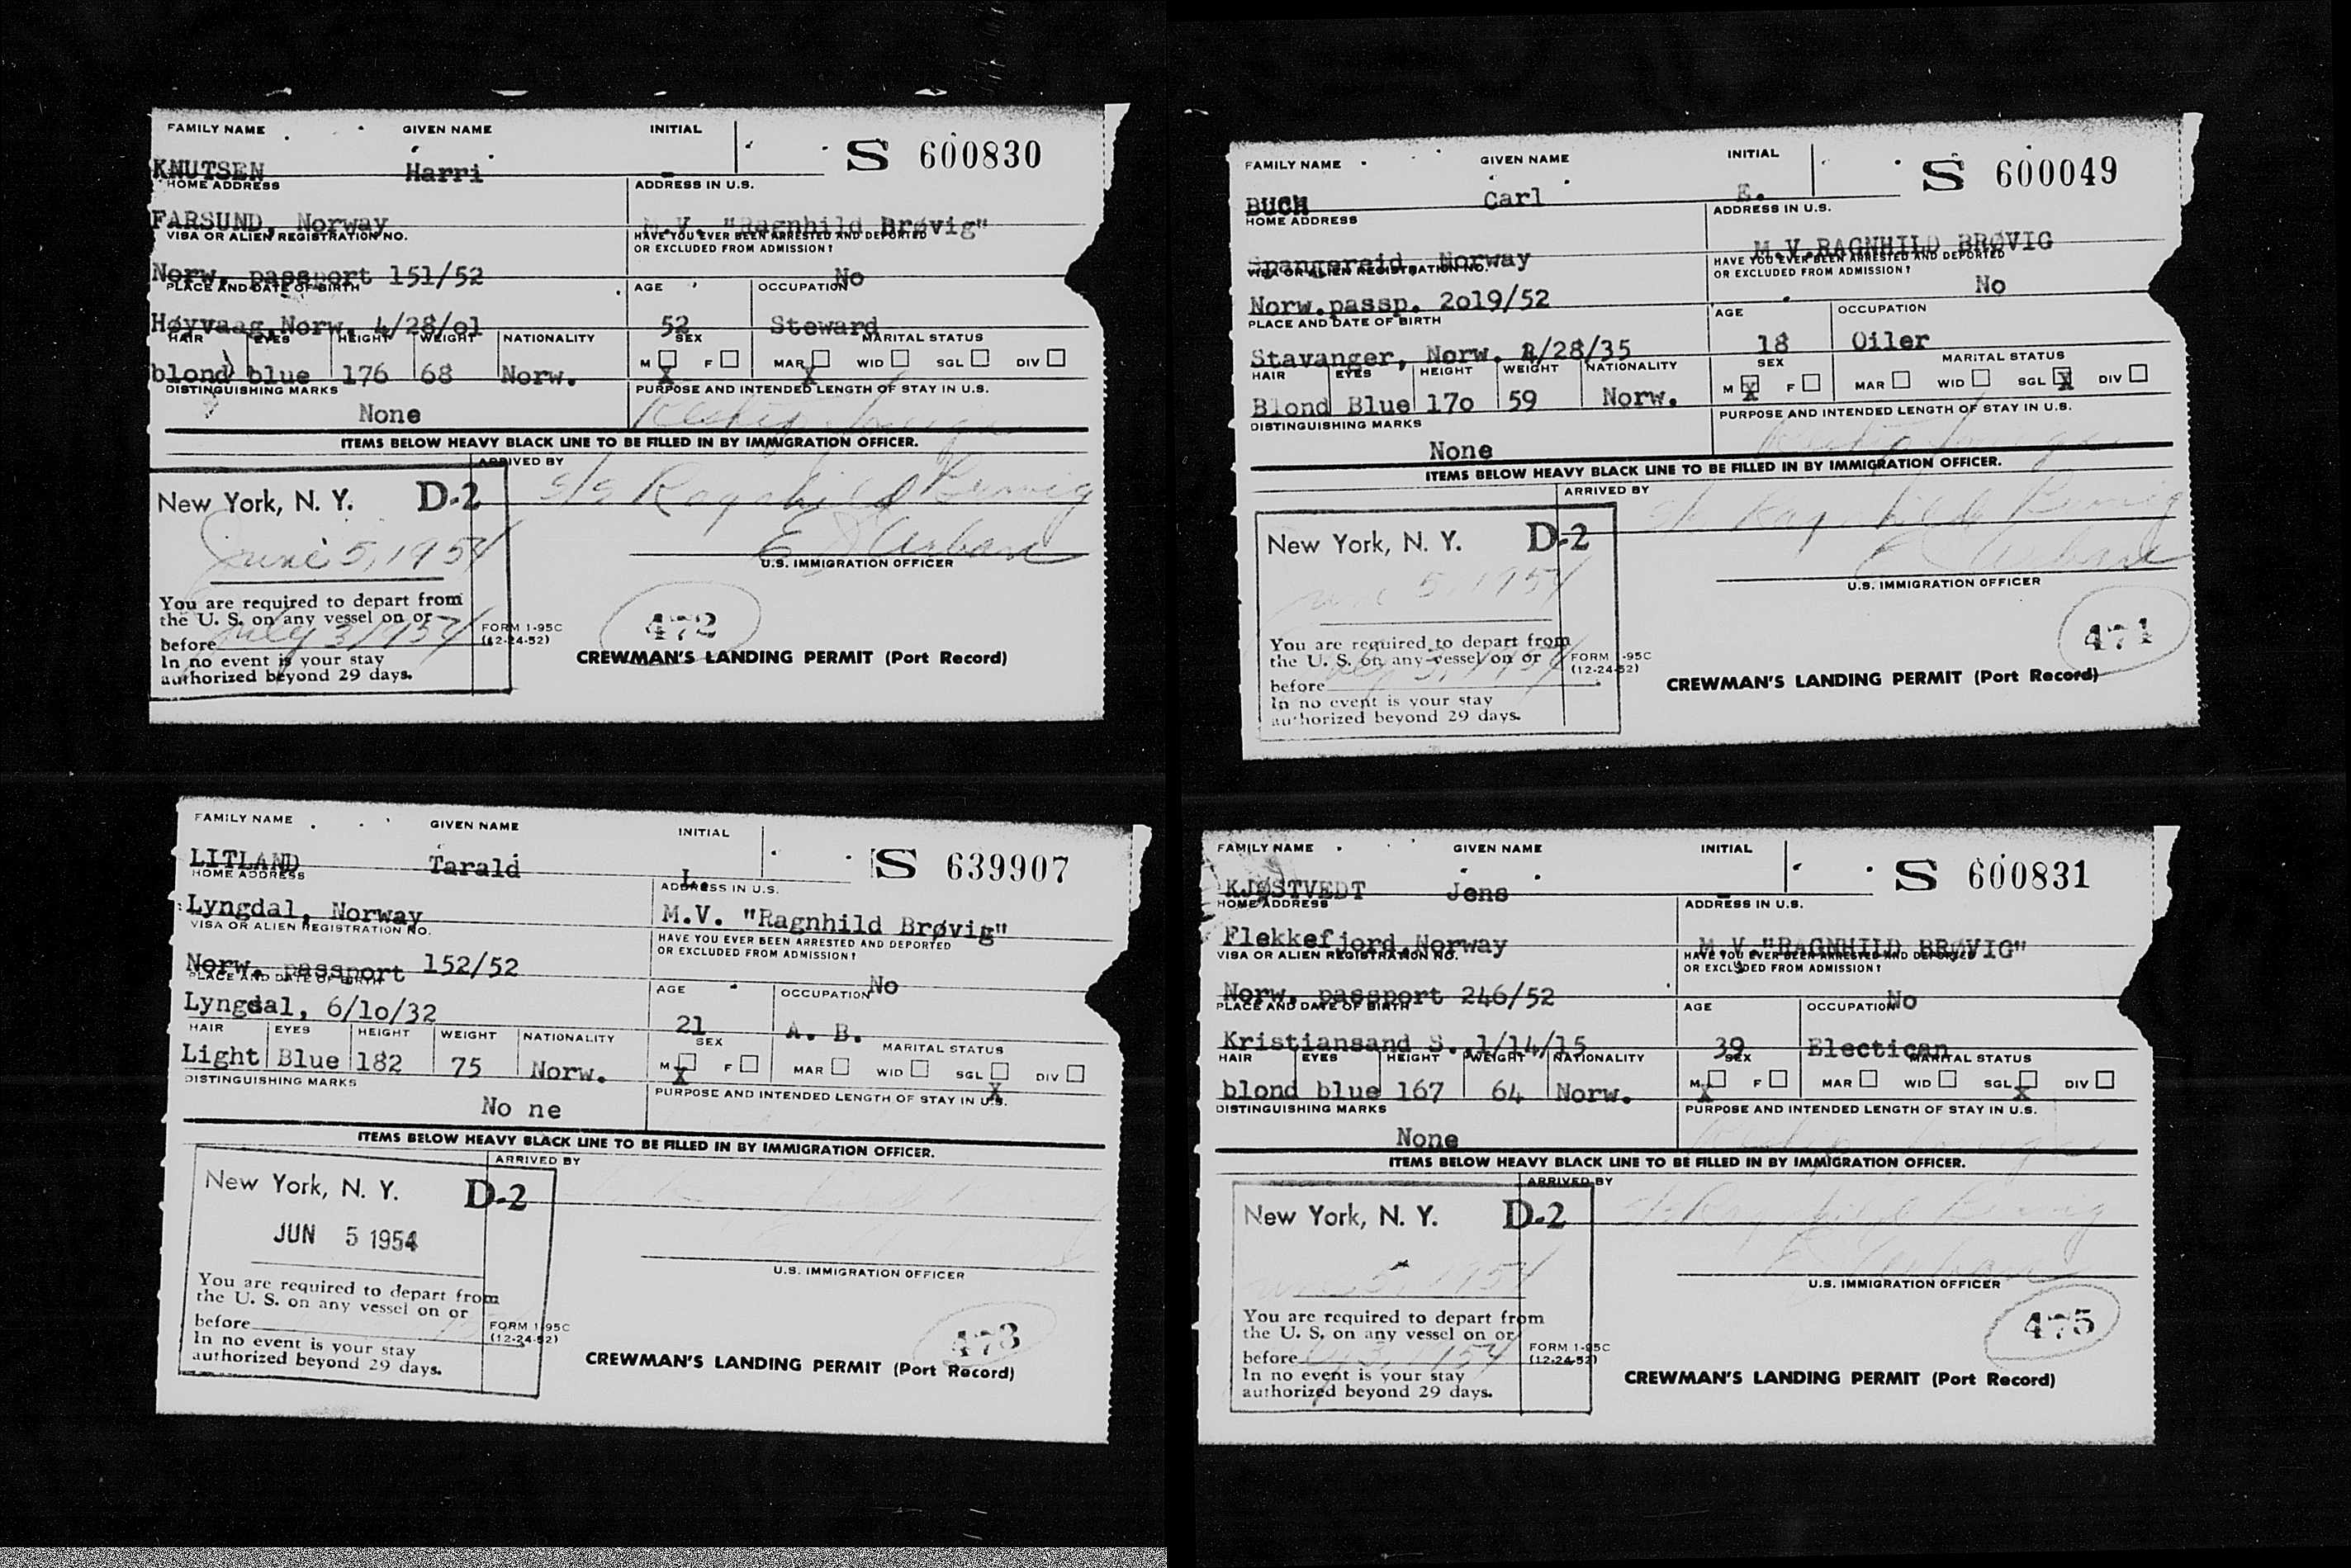 FAMILY NAME GIVEN NAME INITIAL
S 600830
KNUTSEN Harri -
HOME ADDRESS ADDRESS IN U.S.
FARSUND, Norway M.V. "Ragnhild Brøvig"
VISA OR ALIEN REGISTRATION NO. HAVE YOU EVER BEEN ARRESTED AND DEPORTED
OR EXCLUDED FROM ADMISSION?
Norw. passport 151/52 No
PLACE AND DATE OF BIRTH AGE OCCUPATION
Høyvaag,Norw. 4/28/o1 52 Steward
HAIR EYES HEIGHT WEIGHT NATIONALITY SEX MARITAL STATUS
M F MAR WID SGL DIV
blond blue 176 68 Norw. X X
DISTINGUISHING MARKS PURPOSE AND INTENDED LENGTH OF STAY IN U.S.
None
ITEMS BELOW HEAVY BLACK LINE TO BE FILLED IN BY IMMIGRATION OFFICER.
ARRIVED BY
New York, N. Y. D-2 S/S Ragnhild Brovig
June 5, 1954
U.S. IMMIGRATION OFFICER
You are required to depart from
the U. S. on any vessel on or
before July 3, 1954
In no event is your stay
authorized beyond 29 days.
FORM I-95C
(12-24-52)
472
CREWMAN'S LANDING PERMIT (Port Record)
FAMILY NAME GIVEN NAME INITIAL
S 600049
BUCH Carl E.
HOME ADDRESS ADDRESS IN U.S.
Spangereid, Norway M.V.RAGNHILD BRØVIG
VISA OR ALIEN REGISTRATION NO. HAVE YOU EVER BEEN ARRESTED AND DEPORTED
OR EXCLUDED FROM ADMISSION?
Norw.passp. 2o19/52 No
PLACE AND DATE OF BIRTH AGE OCCUPATION
Stavanger, Norw. /28/35 18 Oiler
HAIR EYES HEIGHT WEIGHT NATIONALITY SEX MARITAL STATUS
M X F MAR WID SGL X DIV
Blond Blue 17o 59 Norw.
DISTINGUISHING MARKS PURPOSE AND INTENDED LENGTH OF STAY IN U.S.
None
ITEMS BELOW HEAVY BLACK LINE TO BE FILLED IN BY IMMIGRATION OFFICER.
ARRIVED BY
New York, N. Y. D-2 S/S Ragnhild Brovig
June 5, 1954
U.S. IMMIGRATION OFFICER
You are required to depart from
the U. S. on any vessel on or
before July 3, 1954
In no event is your stay
authorized beyond 29 days.
FORM I-95C
(12-24-52)
CREWMAN'S LANDING PERMIT (Port Record)
FAMILY NAME GIVEN NAME INITIAL
S 639907
LITLAND Tarald L.
HOME ADDRESS ADDRESS IN U.S.
Lyngdal, Norway M.V. "Ragnhild Brøvig"
VISA OR ALIEN REGISTRATION NO. HAVE YOU EVER BEEN ARRESTED AND DEPORTED
OR EXCLUDED FROM ADMISSION?
Norw. passport 152/52 No
PLACE AND DATE OF BIRTH AGE OCCUPATION
Lyngdal, 6/1o/32 21 A. B.
HAIR EYES HEIGHT WEIGHT NATIONALITY SEX MARITAL STATUS
M F MAR WID SGL DIV
Light Blue 182 75 Norw. X X
DISTINGUISHING MARKS PURPOSE AND INTENDED LENGTH OF STAY IN U.S.
No ne
ITEMS BELOW HEAVY BLACK LINE TO BE FILLED IN BY IMMIGRATION OFFICER.
ARRIVED BY
New York, N. Y. D-2
JUN 5 1954
U.S. IMMIGRATION OFFICER
You are required to depart from
the U. S. on any vessel on or
before
In no event is your stay
authorized beyond 29 days.
FORM I-95C
(12-24-52)
473
CREWMAN'S LANDING PERMIT (Port Record)
FAMILY NAME GIVEN NAME INITIAL
S 600831
KJØSTVEDT Jens -
HOME ADDRESS ADDRESS IN U.S.
Flekkefjord,Norway M.V."RAGNHILD BRØVIG"
VISA OR ALIEN REGISTRATION NO. HAVE YOU EVER BEEN ARRESTED AND DEPORTED
OR EXCLUDED FROM ADMISSION?
Norw. passport 246/52 No
PLACE AND DATE OF BIRTH AGE OCCUPATION
Kristiansand S. 1/14/15 39 Electican
HAIR EYES HEIGHT WEIGHT NATIONALITY SEX MARITAL STATUS
M F MAR WID SGL DIV
blond blue 167 64 Norw. X X
DISTINGUISHING MARKS PURPOSE AND INTENDED LENGTH OF STAY IN U.S.
None
ITEMS BELOW HEAVY BLACK LINE TO BE FILLED IN BY IMMIGRATION OFFICER.
ARRIVED BY
New York, N. Y. D-2 S/S Ragnhild Brovig
June 5, 1954
U.S. IMMIGRATION OFFICER
You are required to depart from
the U. S. on any vessel on or
before July 3, 1954
In no event is your stay
authorized beyond 29 days.
FORM I-95C
(12-24-52)
475
CREWMAN'S LANDING PERMIT (Port Record)